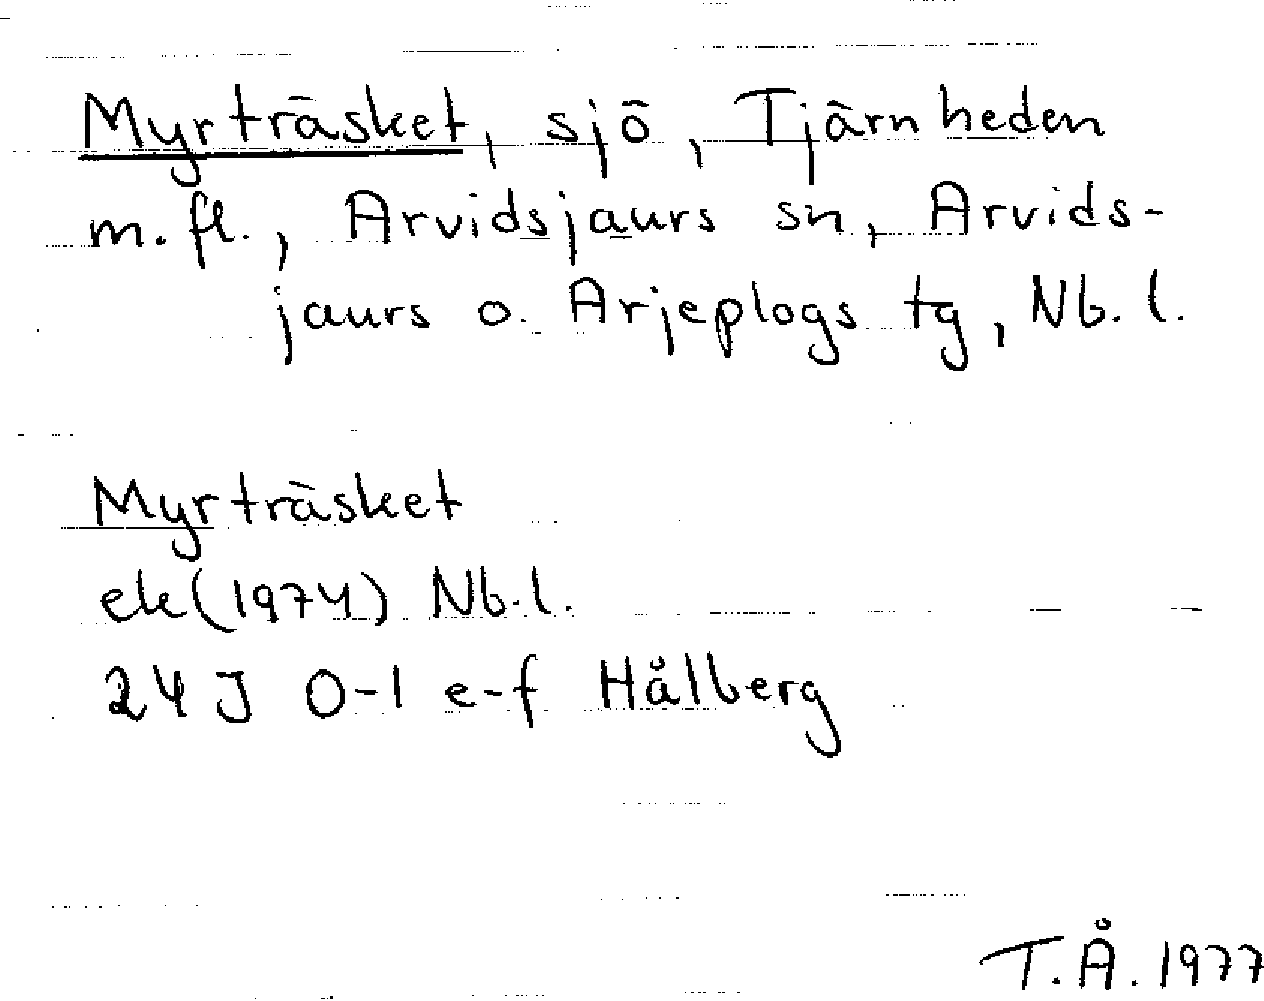 Myrträsket, sjö, Tjärnheden
m.fl., Arvidsjaurs sn, Arvids-
jaurs o. Arjeplogs tg, Nb.l.
Myrträsket
ek(1974) Nb.l.
24 J 0-1 e-f Hålberg
T.Å. 1977